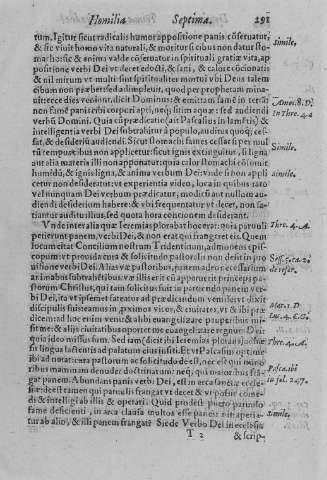 Homilia Septima. 291
rum. Igitur sicut radicalis humor appositione panis cõseruatur,
& sic viuit homo vita naturali, & moritur si cibus non datur sto-
macho: sic & anima valde cõseruatur in spirituali gratiæ vita, ap-
positione verbi Dei vt decet edoctũ, & sani, & calore cõcionatis
& nil mirum vt multi sint spiritualiter mortui vbi Deus talem
cibum non præbet
uit: ecce dies veniunt, dicit Dominus: & emittam famẽ in terrã
non famẽ panis neq; sitim aquæ: sed audiendi
verbũ Domini. Quia cũ prædicatio (ait Pascasius in lamẽtis) &
intelligentia verbi Dei subtrahitur à populo, auditus quoq; cef-
sat, & desideriũ audiendi. Sicut stomachi fames cessat si per mul
tũ tempus cibus non applicetur: sicut ignis extinguitur, si ligna
aut alia materia illi non apponatur: quia calor stomachi cõsumit
humidũ, & ignis ligna, & anima verbum Dei: vnde si nõ appli
cetur non desideratur: vt experientia video, loca in quibus taro
vel nunquam Dei verbum prædicatur, non dico aut nolle aut au-
diendi desiderium habere: & vbi frequentatur vt decet, non sa-
tiantur auditu illius, sed quota hora concionem desiderant.
Vnde inter alia quæ Ieremias plorabat hoc erat: quia paruuli
petierunt panem, verbi Dei, & non erat qui frangeret eis. Quem
locum citat Concilium nostrum Tridentinum, admonens epis-
copum: vt prouida cura & solicitudo pastoralis non desit in pro
uisione verbi Dei. Alias væ pastoribus, panem adeo necessarium
animabus subtrahẽtibus: væ illis erit cũ apparuerit princeps pa-
storum Christus, qui tam solicitus fuit in partiendo panem ver-
bi Dei, ita vt ipsemet fateatur ad prædicandum venisse: vt dixit
discipulis suis: eamus in proximos vicos, & ciuitates, vt & ibi præ
dicem: ad hoc enim veni: & alibi euangelizare pauperibus mi-
sit me: & aliis ciuitatibus oportet me euangelizare regnum Dei:
quia ideo missus sum. Sed tam (dicit ibi Ieremias plorans) adhæ-
sit lingua lactentis ad palatum eius in siti. Et vt Pascasius optime
ibi ad notat: cura pastorum ac solicitudo deficit, nec est qui mino-
ribus mammam denudet doctrinæ: neq; qui maioribus fran-
gat panem. Abundant panis verbi Dei, est in arca sanctæ eccle-
siæ: deest tamen qui paruulis frangat vt decet & vt posse come-
di & intelligi ab illis & operari. Quid prodest puero paruulo
fame deficienti, in arca clausa multos esse panes: nisi aperia-
tur ab alio, & illi panem frangat? Siede Verbo Dei in ecclesiis
T 2 & scrip-
Simile.
Amos. 8. D.
in Thre. 4.
Simile.
simile.
Thre. 4. A.
de refor.
Mar. 1. D
Luc. 4. C.G.
Thre. 4. A.
Pasca. ibi
in fol. 247.
simile.